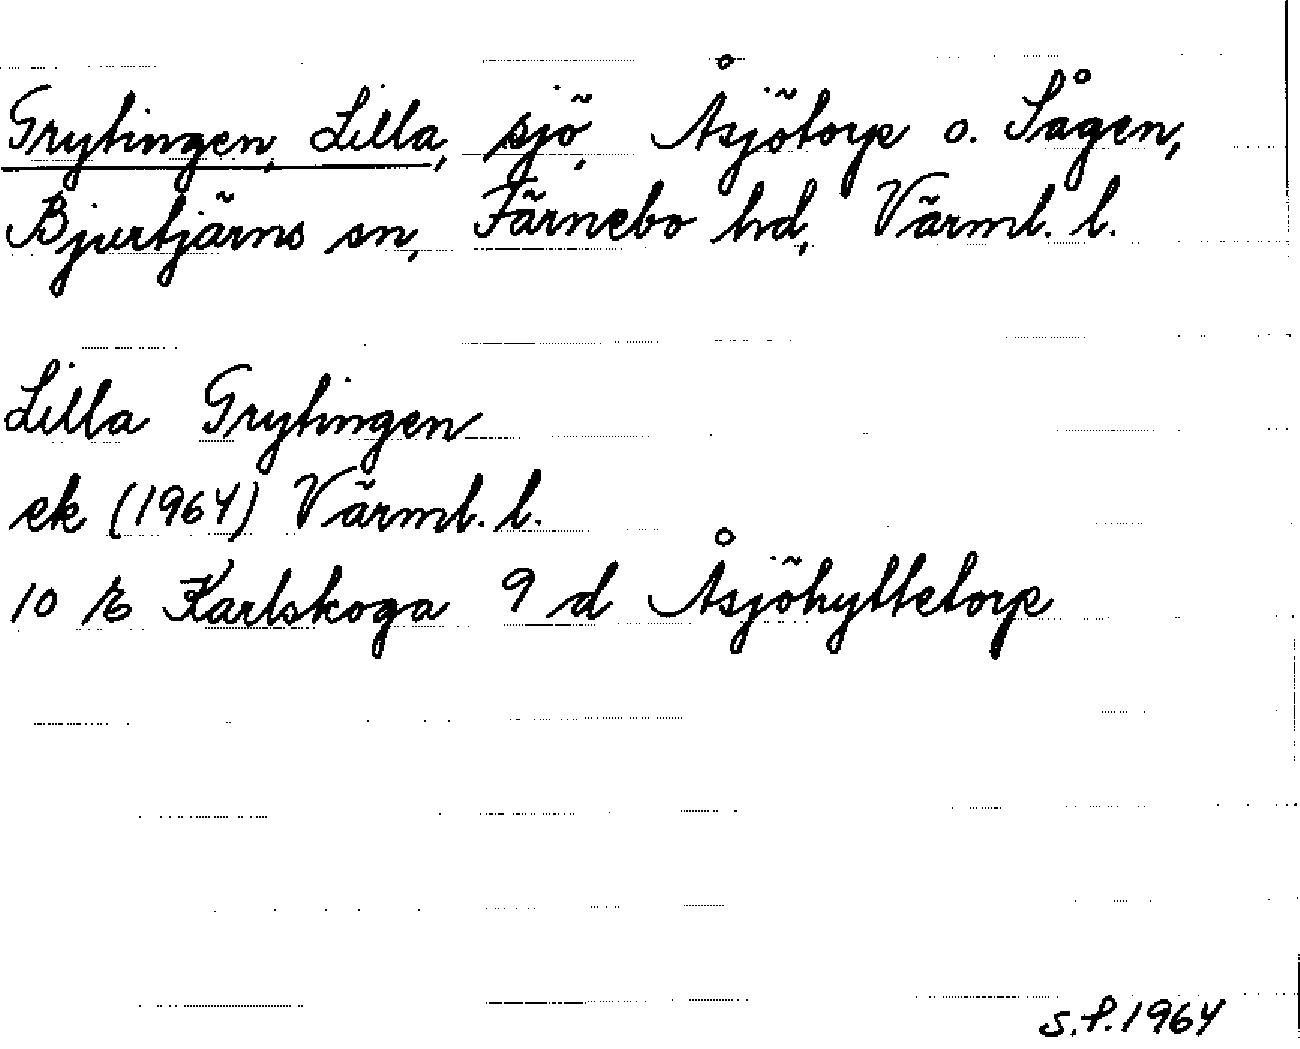 Grytingen, Lilla, sjö, Åsjötorp o. Sågen,
Bjurtjärns sn, Färnebo hd, Värml. l.
Lilla Grytingen
ek (1964) Värml. l.
10 E Karlskoga 9 d Åsjöhyttetorp
S.P. 1964